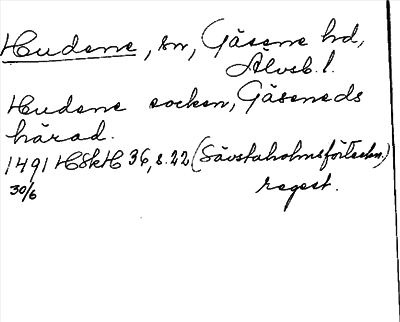 Hudene, sn, Gäsene hd,
Älvsb. l.
Hudene socken, Gäseneds
härad.
1491 HSkH 36, s. 22 (Sävstaholmsförteckn.)
30/6 regest.